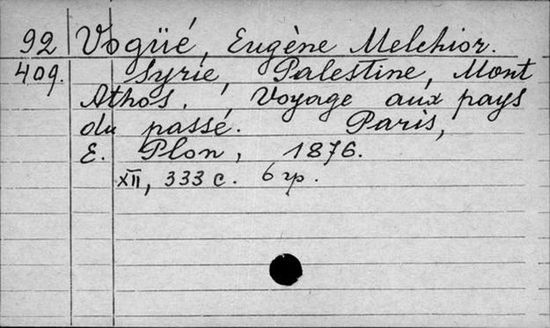 92 Vogüé, Eugène Melchior.
409. Syrie, Palestine, Mont
Athos. Voyage aux pays
du passé. Paris,
E. Plon, 1876.
XII, 333 c. 6 гр.